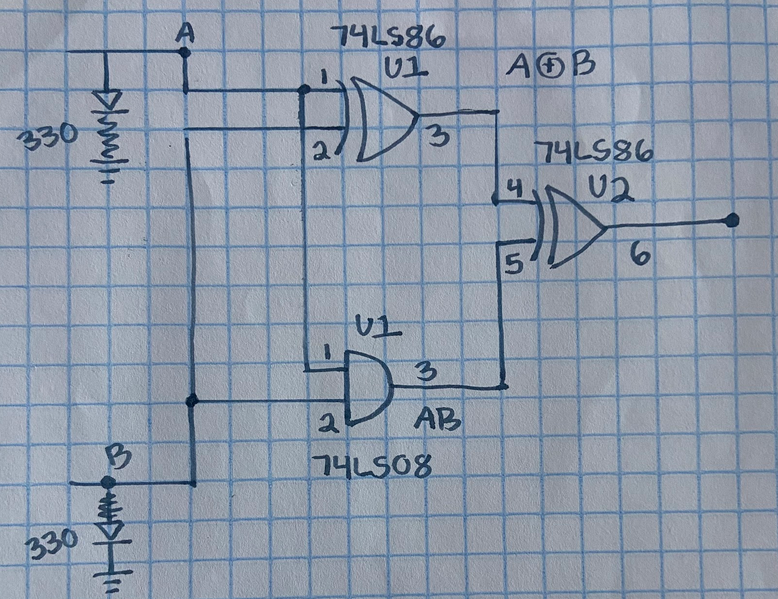 A
74LS86
U1
A⊕B
1
330
2
3
74LS86
4
U2
5
6
U1
1
3
2
AB
B
74LS08
330